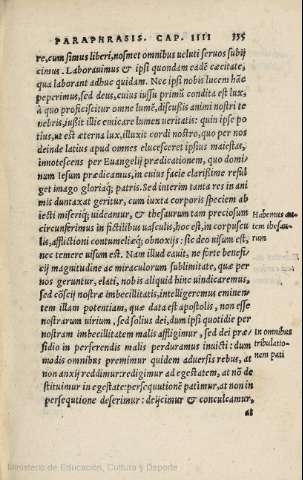 PARAPHRASIS. CAP. IIII 335
re, cum simus liberi, nosmet omnibus ueluti seruos subij
cimus. Laborauimus & ipsi quondam eadē cæcitate,
qua laborant adhuc quidam. Nec ipsi nobis lucem hāc
peperimus, sed deus, cuius iussu primū condita est lux,
à quo proficiscitur omne lumē, discussis animi nostri te
nebris, iussit illic emicare lumen ueritatis: quin ipse po
tius, ut est æterna lux, illuxit cordi nostro, quo per nos
deinde latius apud omnes elucesceret ipsius maiestas,
innotescens per Euangelij prædicationem, quo domi
num Iesum prædicamus, in cuius facie clarissime reful
get imago gloriaq́; patris. Sed interim tanta res in ani
mis duntaxat geritur, cum iuxta corporis speciem ab
iecti miseriq́; uideamur, & thesaurum tam preciosum
circunferimus in fictilibus uasculis, hoc est, in corpuscu
lis, afflictioni contumeliæq́; obnoxijs: sic deo uisum est,
nec temere uisum est. Nam illud cauit, ne forte benefi/
cij magnitudine ac miraculorum sublimitate, quæ per
nos geruntur, elati, nobis aliquid hinc uindicaremus,
sed cōscij nostræ imbecillitatis, intelligeremus eminen/
tem illam potentiam, quæ data est apostolis, non esse
nostrarum uirium, sed solius dei, dum ipsi quotidie per
nostram imbecillitatem malis affligimur, sed dei præ/
sidio in perferendis malis perduramus inuicti: dum
modis omnibus premimur quidem aduersis rebus, at
non anxij reddimur: redigimur ad egestatem, at nō de
stituimur in egestate: persequutionē patimur, at non in
persequtione deserimur: deijcimur & conculcamur,
at
Habemus au
tem thesau-
rum
In omnibus
tribulatio-
nem pati
Ministerio de Educación, Cultura y Deporte